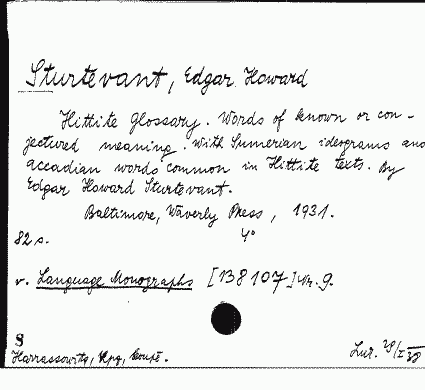 Sturtevant, Edgar Howard
Hittite Glossary. Words of known or con-
jectured meaning. With Sumerian ideograms and
accadian words common in Hittite texts. By
Edgar Howard Sturtevant.
Baltimore, Waverly Press, 1931.
82 s. 4°
v. Language Monographs [138107] Nr. 9.
8
Harrassowitz, Lpg, koupě. Lur. 28/I 38